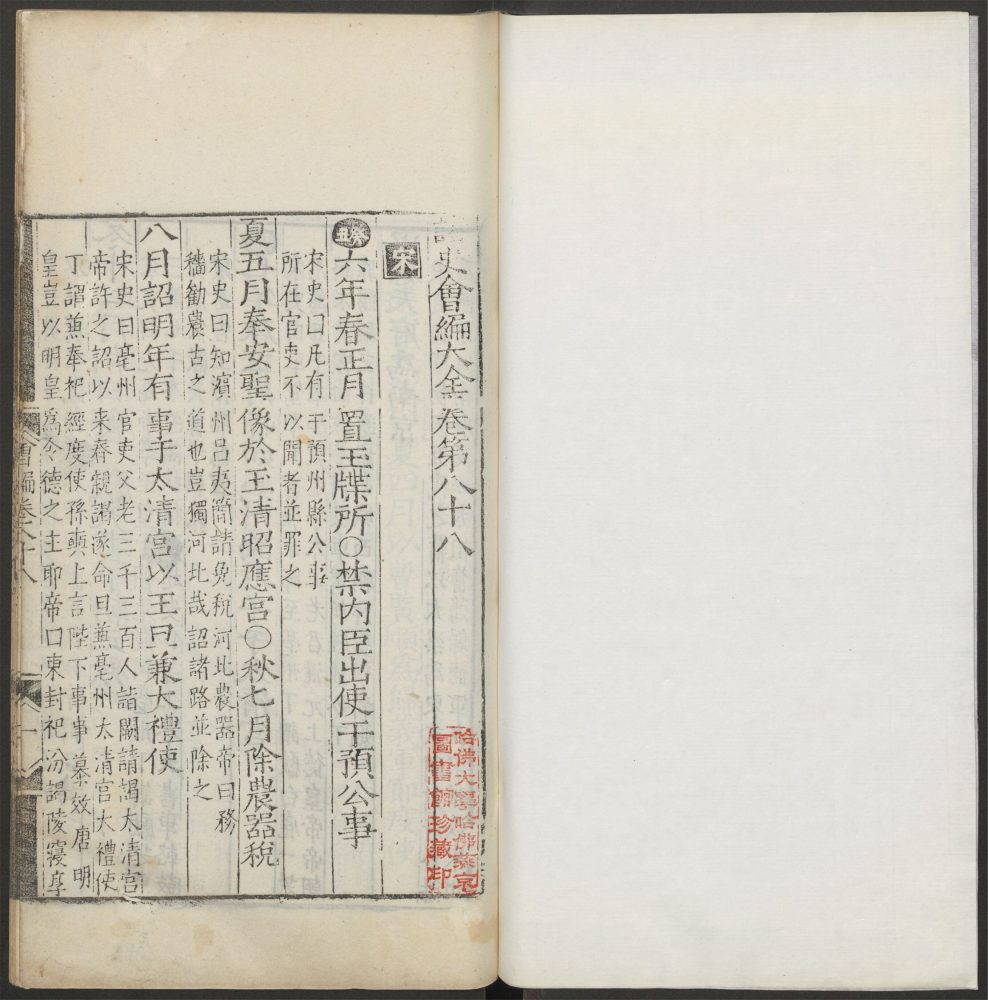 諸史會編大全卷第八十八
宋
癸丑六年春正月置玉牒所○禁內臣出使干預公事
宋史曰凡有干預州縣公事
所在官吏不以聞者並罪之
夏五月奉安聖像於玉清昭應宮○秋七月除農器稅
宋史曰知濱州呂夷簡請免稅河北農器帝曰務
穡勸農古之道也豈獨河北哉詔諸路並除之
八月詔明年有事于太清宮以王旦兼大禮使
宋史曰亳州官吏父老三千三百人詣闕請謁太清宮
帝許之詔以來春親謁遂命旦兼亳州太清宮大禮使
丁謂兼奉祀經度使孫奭上言陛下事事慕效唐明
皇豈以明皇為令德之主耶帝曰東封祀汾謁陵寢享
會編卷八十八
一
哈佛大學哈佛燕京
圖書館珍藏印